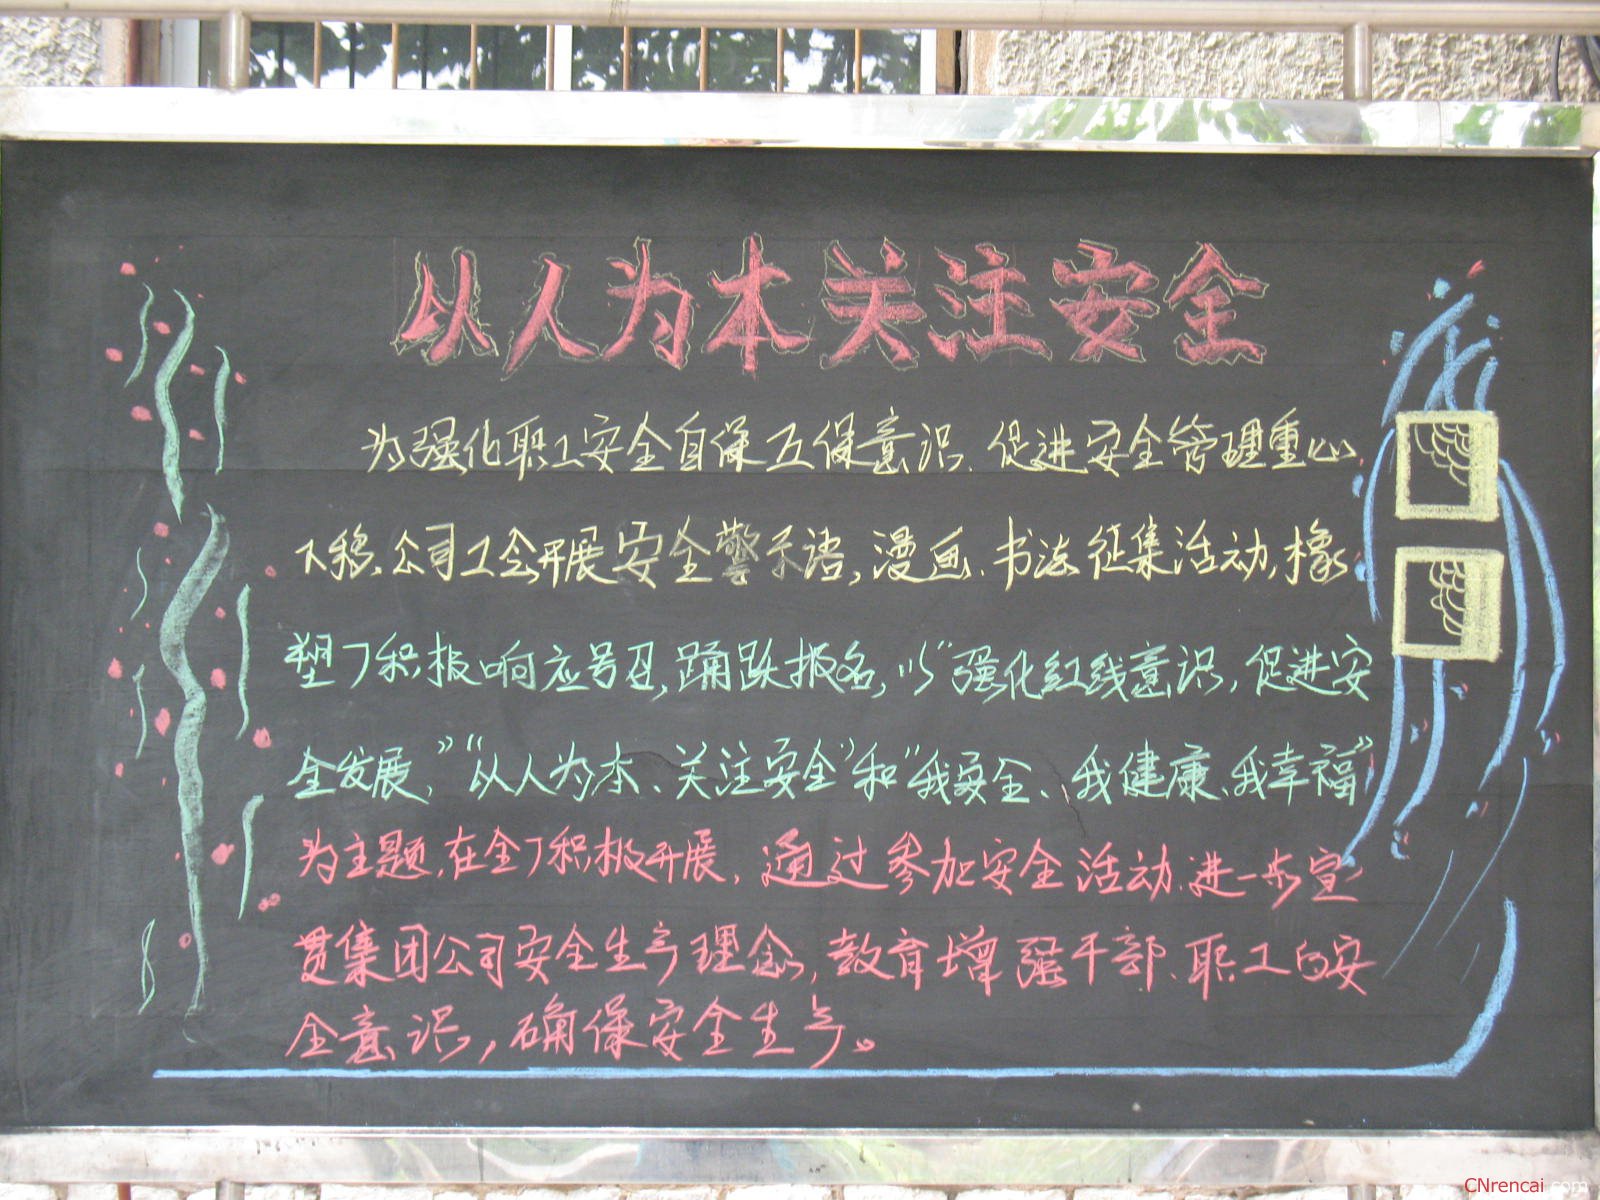 以人为本关注安全
为强化职工安全自保互保意识、促进安全管理重心
下移、公司工会开展安全警示语,漫画、书法征集活动,橡
塑厂积极响应号召,踊跃报名,以“强化红线意识,促进安
全发展,”“以人为本、关注安全”和“我安全、我健康、我幸福”
为主题,在全厂积极开展,通过参加安全活动、进一步宣
贯集团公司安全生产理念,教育增强干部、职工的安
全意识,确保安全生产。
CNrencai.com